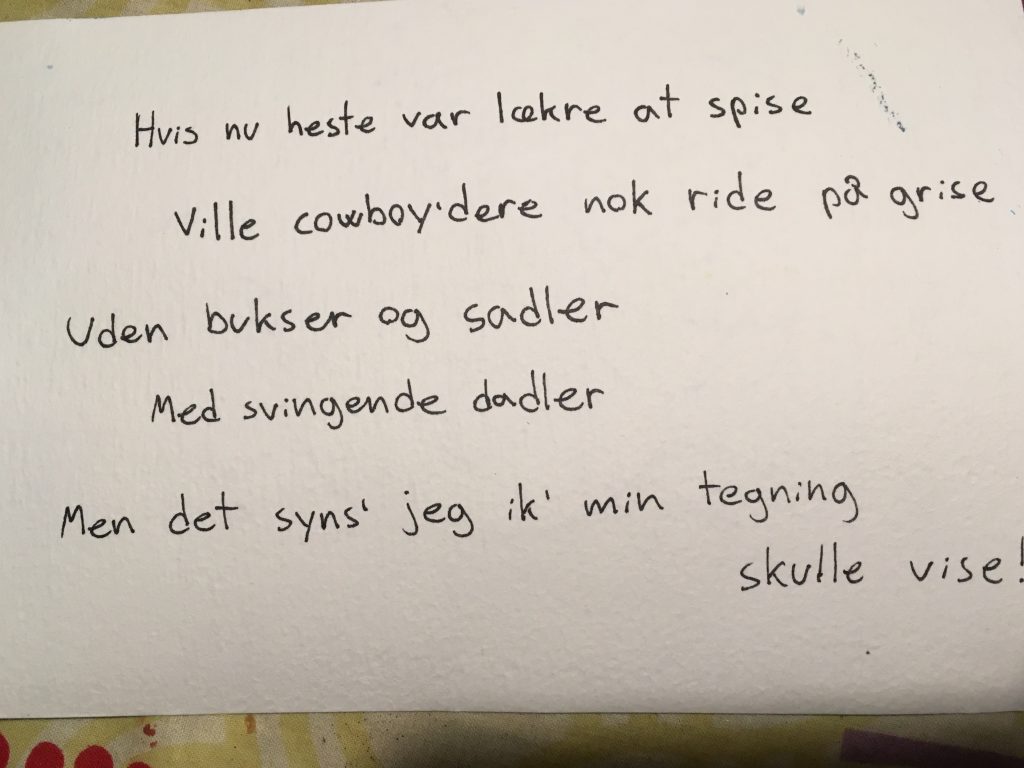 Hvis nu heste var lækre at spise
Ville cowboy'dere nok ride på grise
Uden bukser og sadler
Med svingende dadler
Men det syns' jeg ik' min tegning
skulle vise!